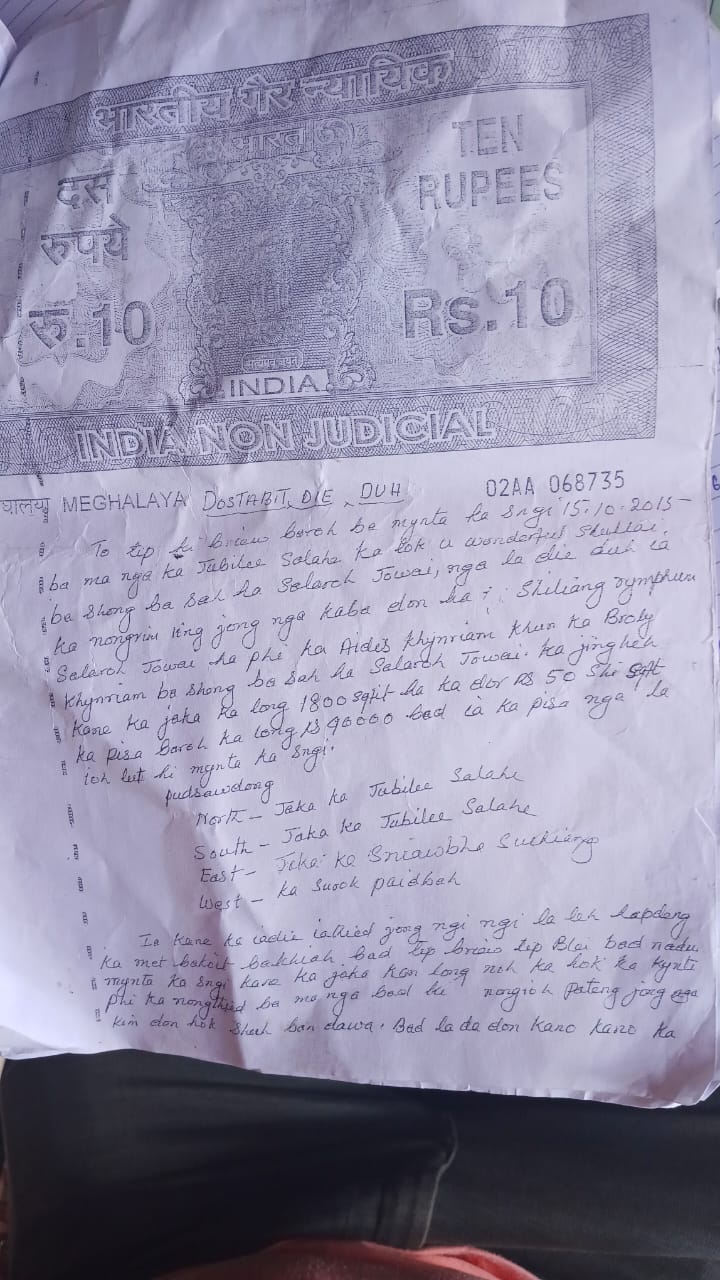 भारतीय गैर न्यायिक
भारत
दस
रुपये
रु.10
TEN
RUPEES
Rs.10
INDIA
INDIA NON JUDICIAL
MEGHALAYA DOSTABIT, DIE, DUH 02AA 068735
To tip ki briew baroh ba mynta ka Sngi 15.10.2015 -
ba ma nga ka Jubilee Salahe ka lok u wonderful Shullai.
ba shong ba sah ha Salaroh Jowai, nga la die duh ia
ka nongrim iing jong nga kaba don ha Shiliang rymphum
Salaroh Jowai ha phi ka Aidis Khynriam khun ka Broly
Khynriam ba shong ba sah ha Salaroh Jowai. ka jingheh
kane ka jaka ka long 1800 sqft ha ka dor Rs 50 Shi sqft
ka pisa baroh ka long Rs 90000 bad ia ka pisa nga la
ioh lut hi mynta ka Sngi.
pudsawdong
North - Jaka ka Jubilee Salahe
South - Jaka ka Jubilee Salahe
East - Jaka ka Sniawbha Suchiang
West - ka Surok paidbah
Ia kane ka iadie iathied jong ngi ngi la leh lapdeng
ka met bakoit bakhiah bad tip briew tip Blei bad nadu
mynta ka Sngi kane ka jaka kan long noh ka hok ka kynti
phi ka nongthied ba ma nga bad ki nongioh pateng jong nga
kim don hok shuh ban dawa. Bad lada don kano kano ka